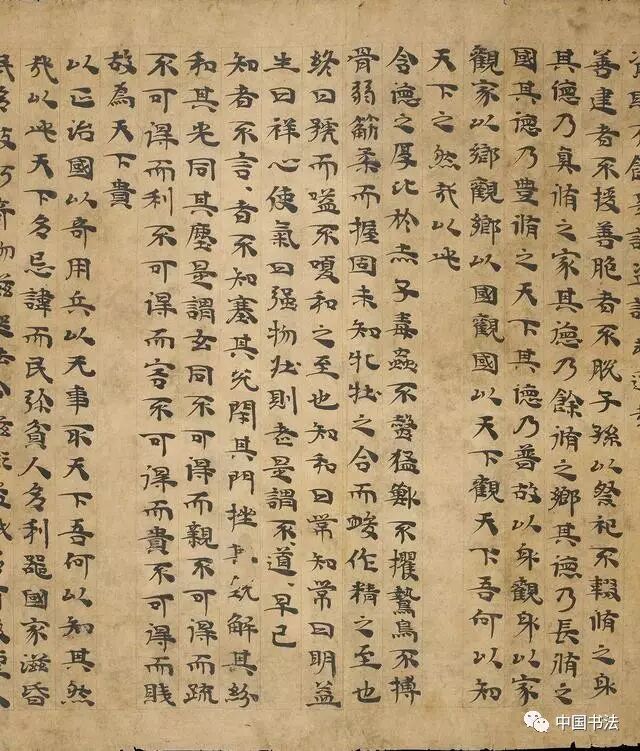 善建者不援善脆者不脫子孫以祭祀不輟脩之身
其德乃真脩之家其德乃餘脩之鄉其德乃長脩之
國其德乃豐脩之天下其德乃普故以身觀身以家
觀家以鄉觀鄉以國觀國以天下觀天下吾何以知
天下之然哉以此
含德之厚比於赤子毒蟲不螫猛獸不攫鷙鳥不搏
骨弱筋柔而握固未知牝牡之合而峻作精之至也
終日號而嗌不嗄和之至也知和曰常知常曰明益
生曰祥心使氣曰强物壯則老是謂不道早已
知者不言、者不知塞其兌閉其門挫其銳解其紛
和其光同其塵是謂玄同不可得而親不可得而疏
不可得而利不可得而害不可得而貴不可得而賤
故為天下貴
以正治國以奇用兵以无事取天下吾何以知其然
哉以此天下多忌諱而民弥貧人多利器國家滋昏
中国书法